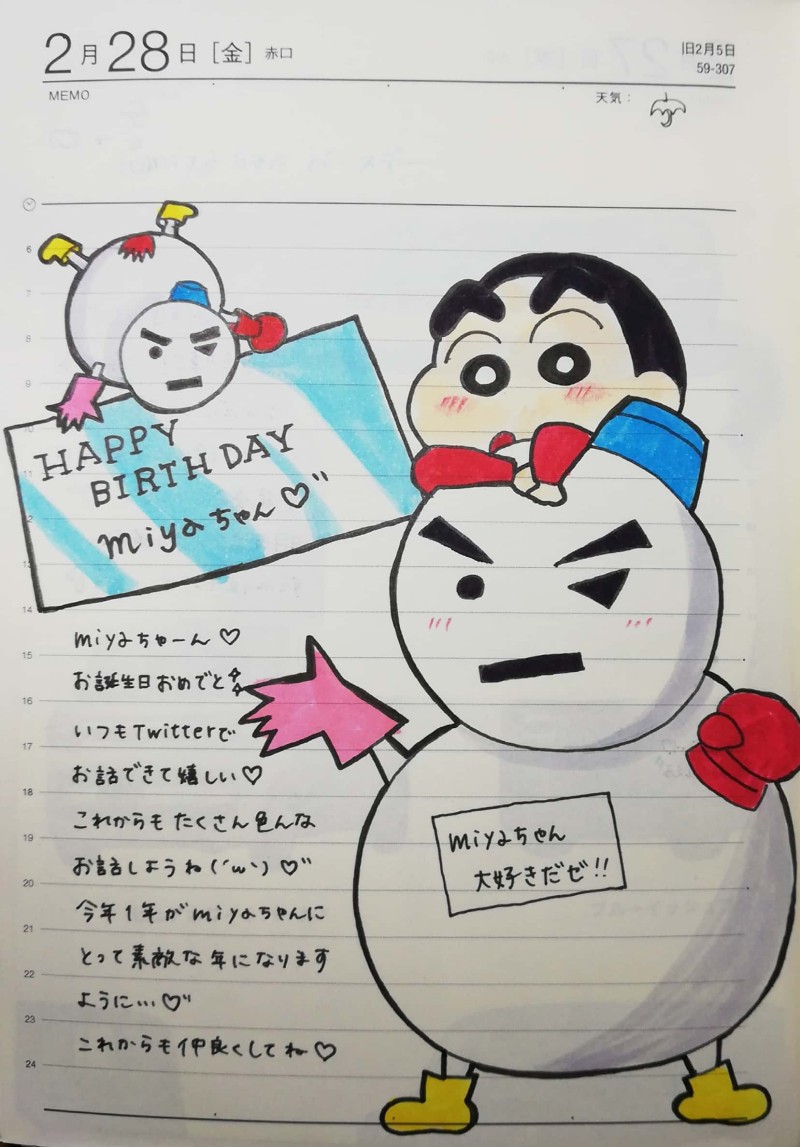 2月28日[金] 赤口
旧2月5日
59-307
MEMO
天気:
HAPPY
BIRTHDAY
miyaちゃん♡"
6
7
8
9
10
11
12
13
14
15
16
17
18
19
20
21
22
23
24
miyaちゅーん♡
お誕生日おめでと
いつもTwitterで
お話できて嬉しい♡
これからもたくさん色んな
お話しようね(´ω`)♡"
今年1年がmiyaちゃんに
とって素敵な年になります
ように…♡"
これからも仲良くしてね♡
miyaちゃん
大好きだぜ!!